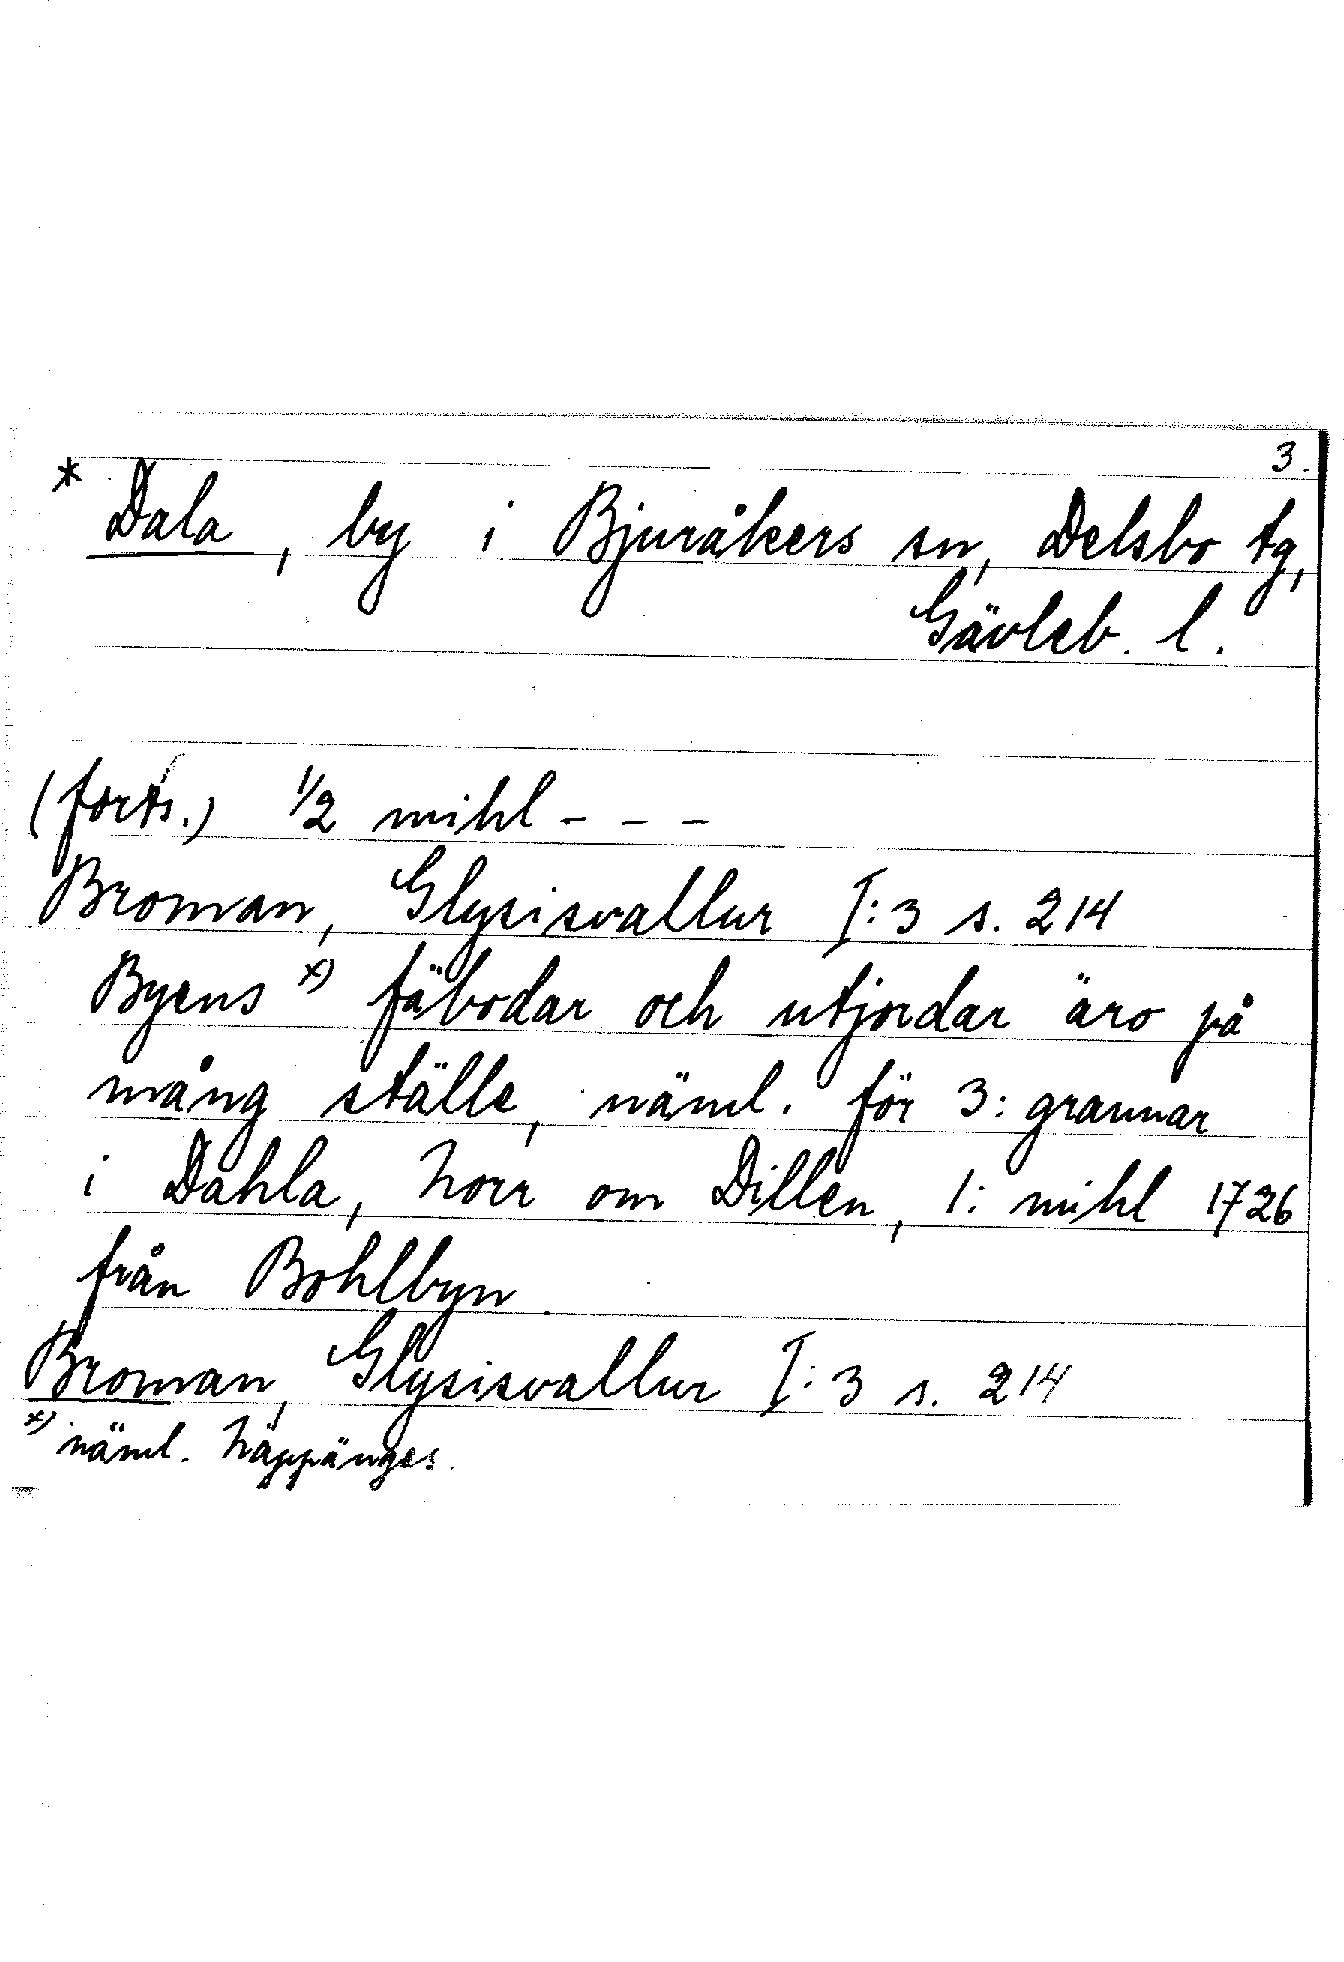 3.
* Dala, by i Bjuråkers sn, Delsbo tg,
Gävleb. l.
(forts.) 1/2 mihl - - -
Broman, Glysisvallur I:3 s. 214
Byens x) fäbodar och utjordar äro på
mång ställe, näml. för 3: grannar
i Dahla, Norr om Dillen, 1: mihl 1726
från Bohlbyn.
Broman, Glysisvallur I:3 s. 214
x) näml. Näppänges.